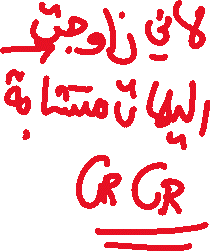 لاني زاوجت
اليهات متشابة
CR CR